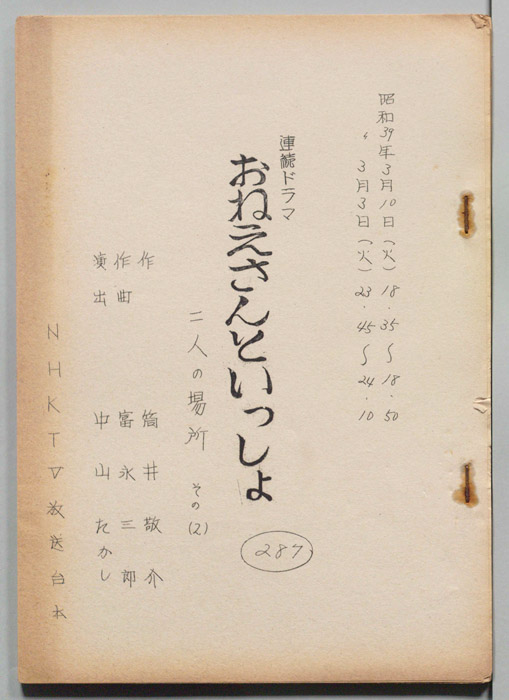 昭和39年3月10日(火)18.35〜18.50
〃 3月3日(火)23.45〜24.10
連続ドラマ
おねえさんといっしょ
二人の場所 その(2)
287
作 筒井敬介
作曲 富永三郎
演出 中山たかし
NHKTV放送台本